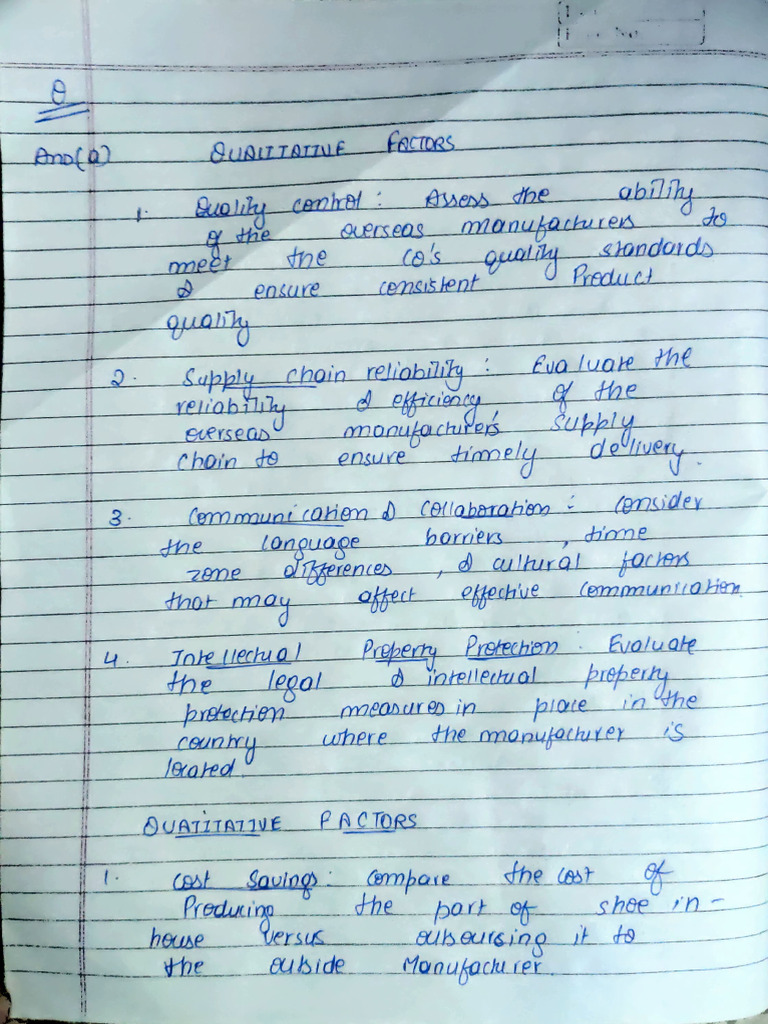 Q
Ans(a) QUALITATIVE FACTORS
1. Quality control : Assess the ability
of the overseas manufacturers to
meet the co's quality standards
& ensure consistent Product
quality
2. Supply chain reliability : Evaluate the
reliability & efficiency of the
overseas manufacturer's supply
chain to ensure timnely delivery.
3. Communication & Collaboration : Consider
the language barriers , time
zone differences , & cultural factors
that may affect effective communication.
4. Intellectual Property Protection . Evaluate
the legal & intellectual property
protection measures in place in the
country where the manufacturer is
located.
QUATITATIVE FACTORS
1. Cost Savings : Compare the cost of
Producing the part of shoe in-
house versus outsoursing it to
the outside Manufacturer.